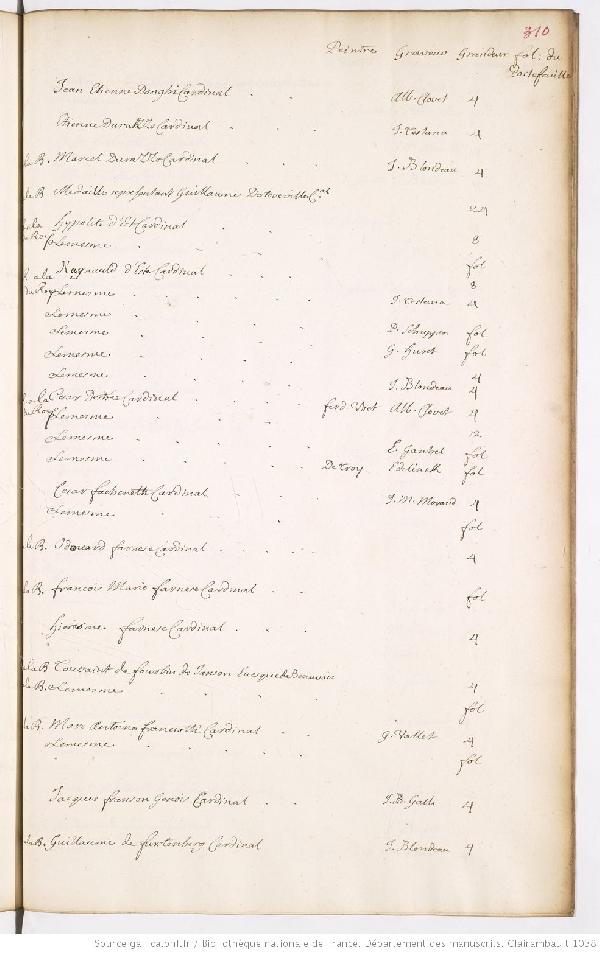 310
Peintre Graveur Grandeur fol: du
Portefeuille
Jean Etienne Donghi Cardinal Alb. Clovet 4
Etienne Durazzo Cardinal J. Testana 4
de R. Marcel Durazzo Cardinal J. Blondeau 4
de R. Medaille representant Guillaume Destouteville C.al
a la Hypolite d'Est Cardinal
Lemesme 8
R. a la Raynauld d'Este Cardinal fol
du Roy Lemesme 8
Lemesme J. Testana 4
Lemesme P. Schuppen fol
Lemesme G. Huret fol
Lemesme J. Blondeau 4
a la Cesar Cardinal 4
Lemesme ferd Voet Alb. Clovet 4
Lemesme 12
Lemesme E. Gantrel fol
De Troy Edelinck fol
Cesar fachenetti Cardinal J. M. Morand 4
Lemesme fol
de R. Odouard farnese Cardinal 4
de R. francois Marie farnese Cardinal fol
Hierosme farnese Cardinal 4
de la R Toussaint de fourbin de Janson Evesque de Beauvais 4
de R. Lemesme fol
de R. Marc Antoine franciotti Cardinal G. Vallet 4
Lemesme fol
Jacques franson Genois Cardinal J. B. Galli 4
de R. Guillaume de furtenberg Cardinal J. Blondeau 4
Source gallica.bnf.fr / Bibliothèque nationale de France. Département des manuscrits. Clairambault 1038